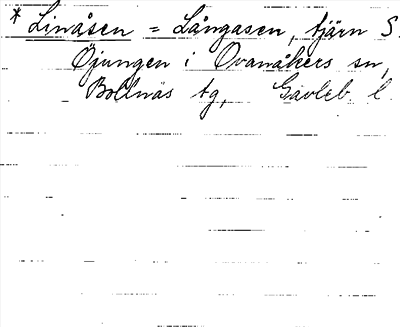 * Linåsen = Långasen, tjärn S.
Öjungen i Ovanåkers sn,
Bollnäs tg, Gävleb. l.